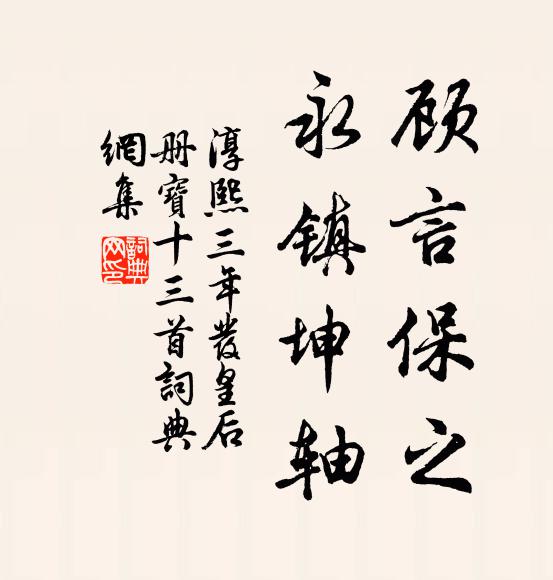 顾言保之
永镇坤轴
淳熙三年發皇后
册寶十三首詞典
網集
詞典
网印